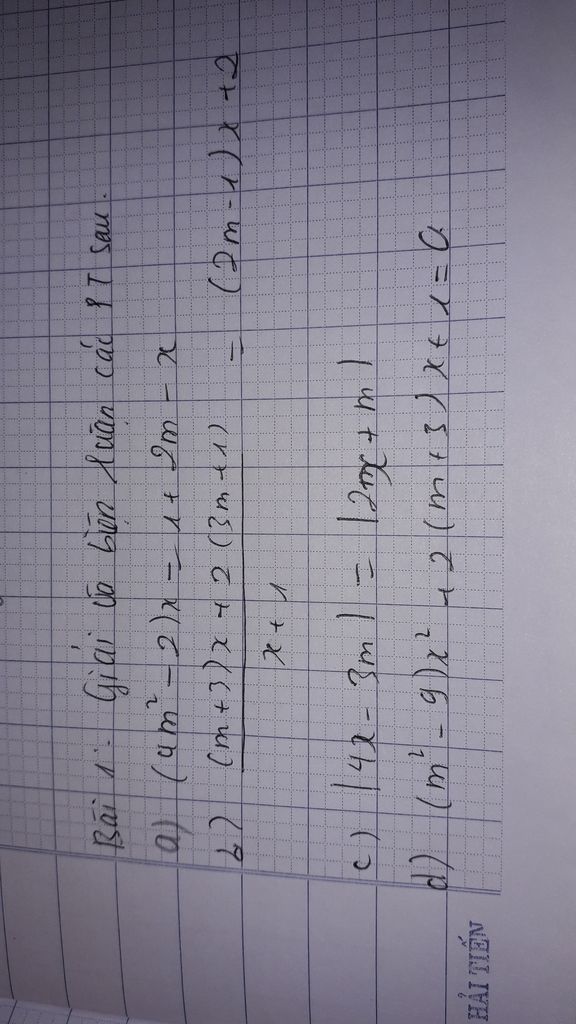 Bài 1: Giải và biện luận các PT sau.
a) (4m² - 2)x = 1 + 2m - x
b) \frac{(m+3)x + 2(3m+1)}{x+1} = (2m-1)x + 2
c) |4x - 3m| = |2mx + m|
d) (m² - 9)x² + 2(m+3)x + 1 = 0.
HẢI TIẾN